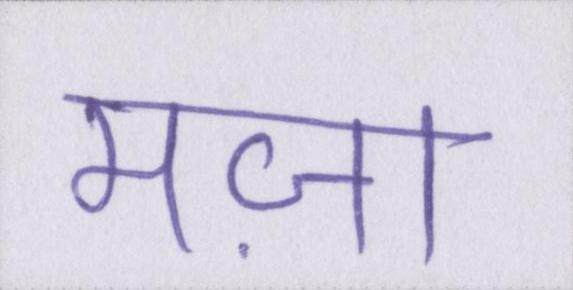 मज़ा